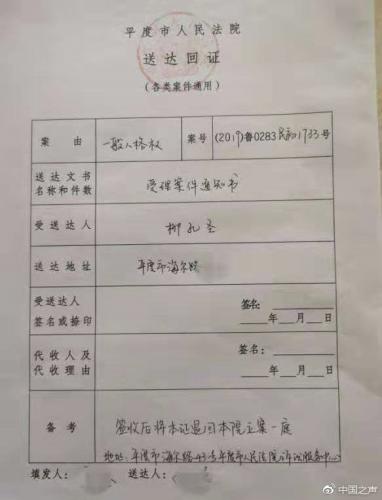 平度市人民法院
送达回证
（各类案件通用）
案由 一般人格权 案号 (2019)鲁0283民初1733号
送达文书名称和件数 受理案件通知书
受送达人 柳孔圣
送达地址 平度市海尔路
受送达人签名或捺印 签名：
____年___月___日
代收人及代收理由 签名：
____年___月___日
备考 签收后将本证退回本院立案一庭
地址：平度市海尔路43号平度市人民法院诉讼服务中心
填发人： 送达人：
@中国之声